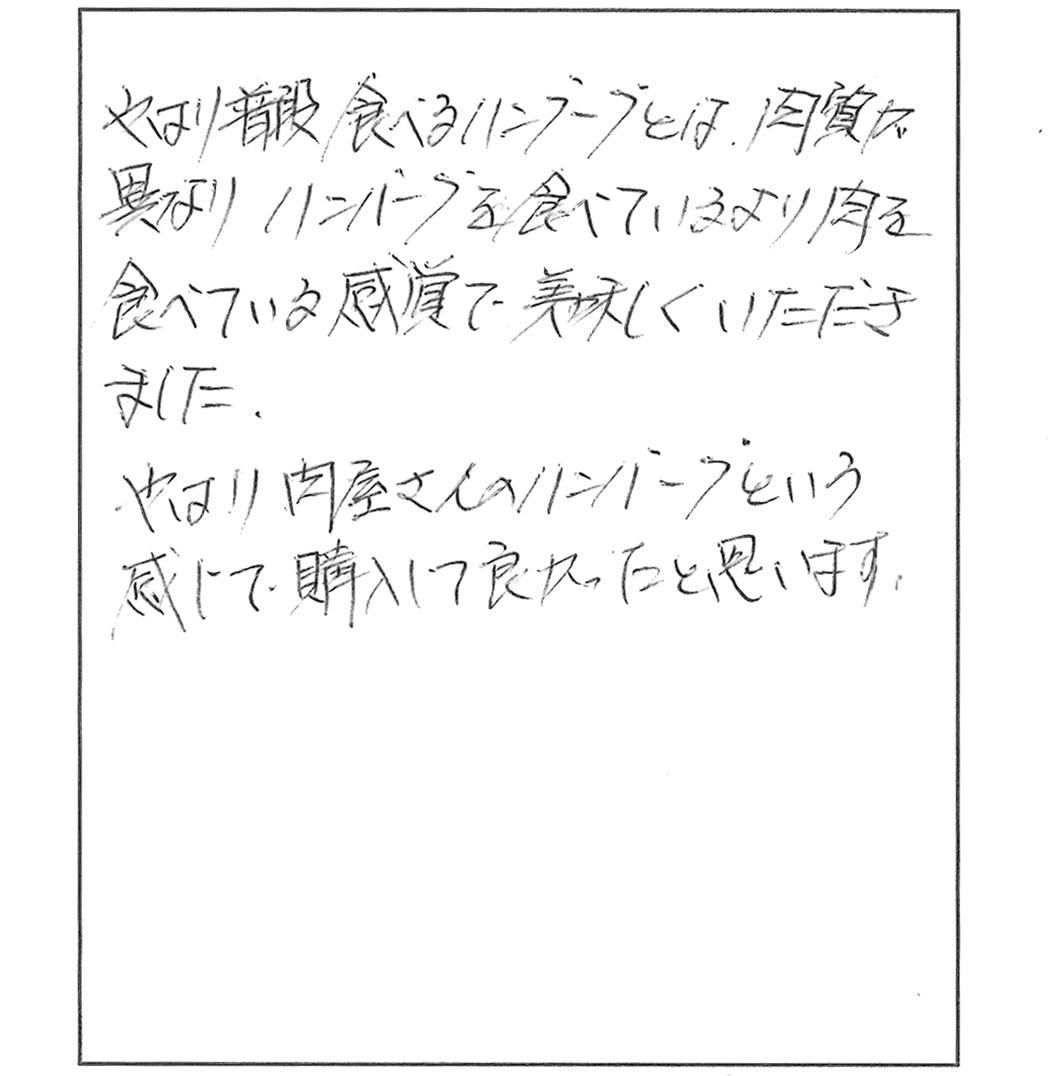 やはり普段食べるハンバーグとは、肉質が
異なり ハンバーグを食べているより肉を
食べている感覚で美味しくいただき
ました。
やはり肉屋さんのハンバーグという
感じで購入して良かったと思います。